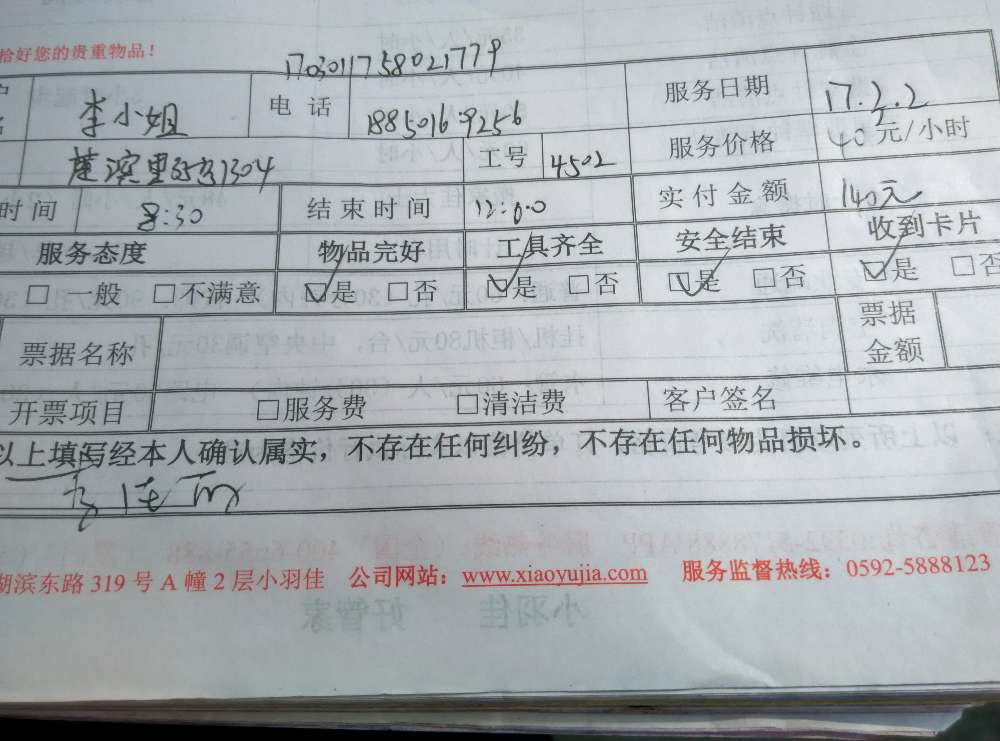 拾好您的贵重物品！
1703011758021779
李小姐 电话 18850169256 服务日期 17.3.2
4502 工号 服务价格 40元/小时
时间 8:30 结束时间 12:00 实付金额 140元
服务态度 物品完好 工具齐全 安全结束 收到卡片
□一般 □不满意 ☑是 □否 ☑是 □否 ☑是 □否 ☑是 □否
票据名称 票据金额
开票项目 □服务费 □清洁费 客户签名
以上填写经本人确认属实，不存在任何纠纷，不存在任何物品损坏。
湖滨东路 319 号 A 幢 2 层小羽佳 公司网站：www.xiaoyujia.com 服务监督热线：0592-5888123